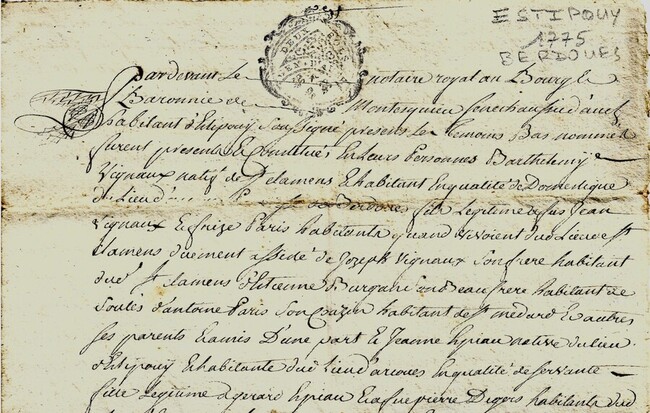 ESTIPOUY
1775
BERDOUES
DEUX SOLS
GEN D'AU
Pardevant Le notaire royal au Bourg le
Baronnie de Montesquiou senechaussee d'auch
habitant d'Estipouy soussigné presents les temoins Bas nommes
furent presents Et Constitués En leurs Personnes Barthelemy
Vignaux natif de St Clamens Et habitant En qualité de Domestique
du Lieu de Berdoues fils Legitime de fus Jean
Vignaux Et frize Paris habitants quand vivoient dud Lieu de St
Clamens duement assisté de Jozeph Vignaux son frere habitant
dud St Clamens d'Etienne Burgan son Beau frere habitant de
d'antoine Paris son Cousin habitant de St medard Et autres
ses parents Et amis D'une part Et Jeanne native du lieu
d'Estipouy Et habitante dud Lieu d'arcoues En qualité de servante
fille Legitime de gerard Et de pierre habitants dud